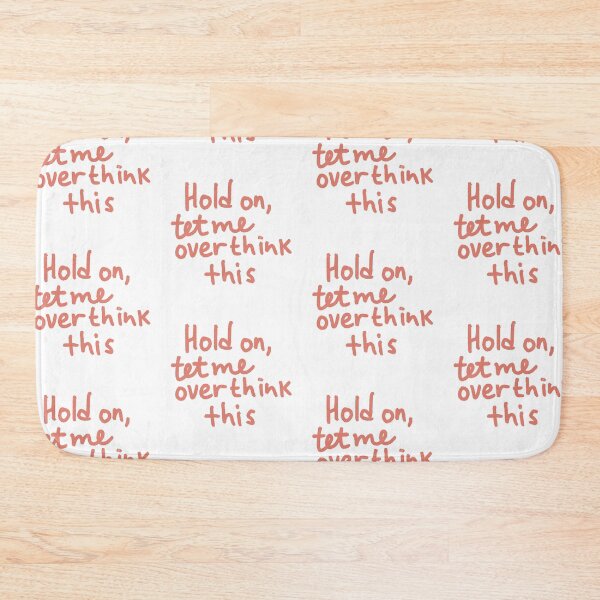 tet me
overthink
this
Hold on,
tet me
overthink
this
Hold on,
tet me
overthink
this
Hold on,
tet me
overthink
this
Hold on,
tet me
overthink
this
tet me
overthink
this
Hold on,
tet me
overthink
this
Hold on,
tet me
overthink
Hold on,
tet me
overthin
this
Hold on,
tet me
overthin
this